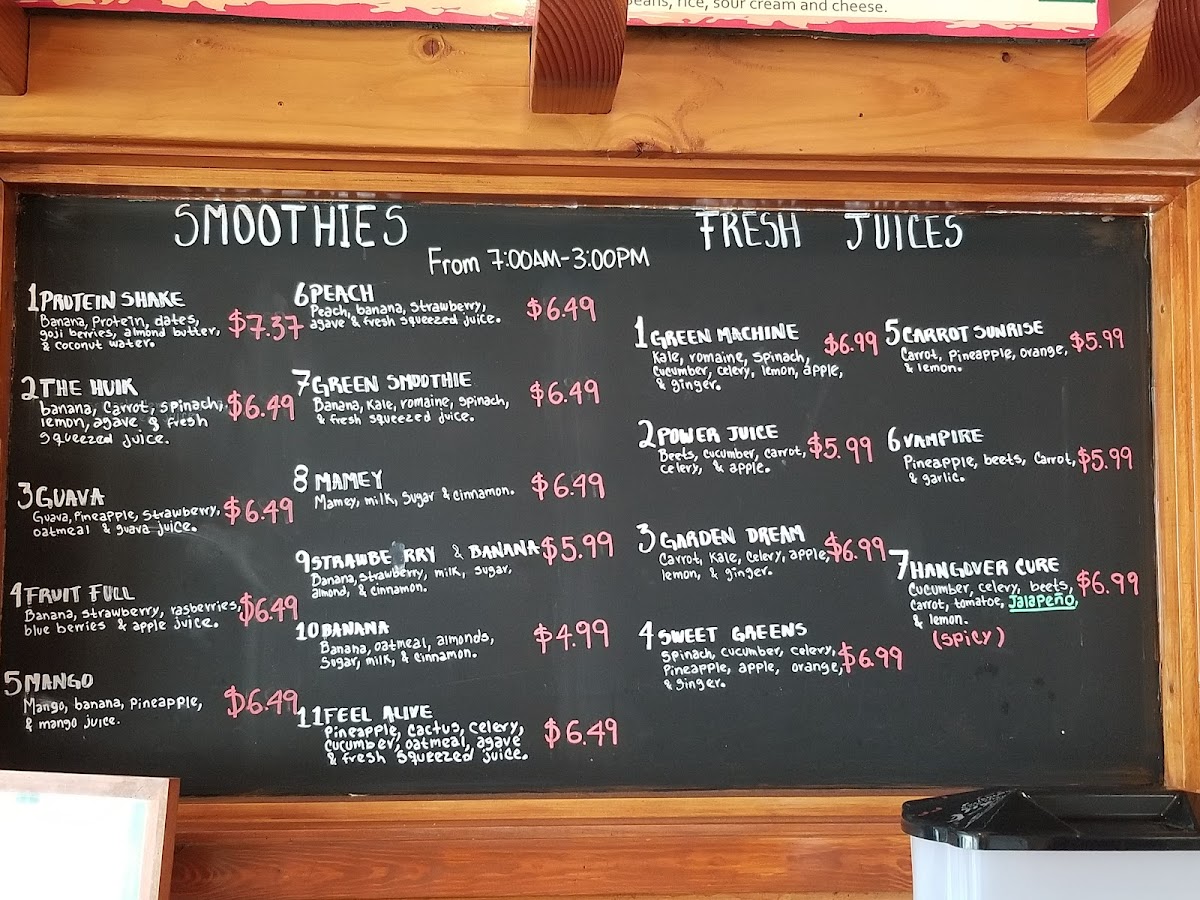 beans, rice, sour cream and cheese.
SMOOTHIES
From 7:00AM-3:00PM
1 PROTEIN SHAKE
Banana, Protein, dates,
goji berries, almond butter,
& coconut water.
$7.37
2 THE HULK
banana, Carrot, spinach,
lemon, agave & fresh
squeezed juice.
$6.49
3 GUAVA
Guava, Pineapple, Strawberry,
oatmeal & guava juice.
$6.49
4 FRUIT FULL
Banana, strawberry, rasberries,
blue berries & apple juice.
$6.49
5 MANGO
Mango, banana, pineapple,
& mango juice.
$6.49
6 PEACH
Peach, banana, strawberry,
agave & fresh squeezed juice.
$6.49
7 GREEN SMOOTHIE
Banana, Kale, romaine, spinach,
& fresh squeezed juice.
$6.49
8 MAMEY
Mamey, milk, sugar & cinnamon.
$6.49
9 STRAWBERRY & BANANA
Banana, strawberry, milk, sugar,
almond, & cinnamon.
$5.99
10 BANANA
Banana, oatmeal, almonds,
Sugar, milk, & cinnamon.
$4.99
11 FEEL ALIVE
Pineapple, Cactus, celery,
cucumber, oatmeal, agave
& fresh squeezed juice.
$6.49
FRESH JUICES
1 GREEN MACHINE
Kale, romaine, spinach,
cucumber, celery, lemon, apple,
& ginger.
$6.99
2 POWER JUICE
Beets, cucumber, carrot,
celery, & apple.
$5.99
3 GARDEN DREAM
Carrot, Kale, Celery, apple,
lemon, & ginger.
$6.99
4 SWEET GREENS
Spinach, cucumber, celery,
Pineapple, apple, orange,
& ginger.
$6.99
5 CARROT SUNRISE
Carrot, Pineapple, orange,
& lemon.
$5.99
6 VAMPIRE
Pineapple, beets, Carrot,
& garlic.
$5.99
7 HANGOVER CURE
Cucumber, celery, beets,
Carrot, tomatoe, Jalapeño,
& lemon.
(SPICY)
$6.99